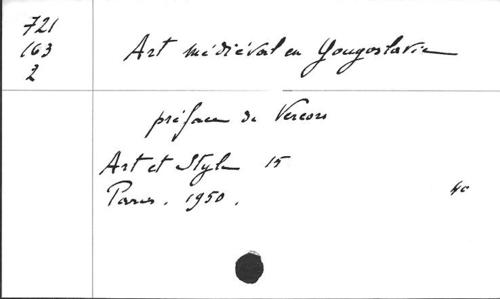 721
163
2
Art médiéval en Yougoslavie
préface de Vercors
Art et Style 15
Paris. 1950.
4°